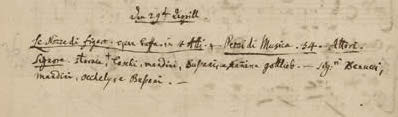 den 29t Aprill.
Le Nozze di figaro. opera buffa in 4 Atti. – Pezzi di Musica. 34. Attori.
Signore. storace, laschi, mandini, Bussani, e Nanina gottlieb. – Sig:ri Benucci,
mandini, occhely, e Bussani. –